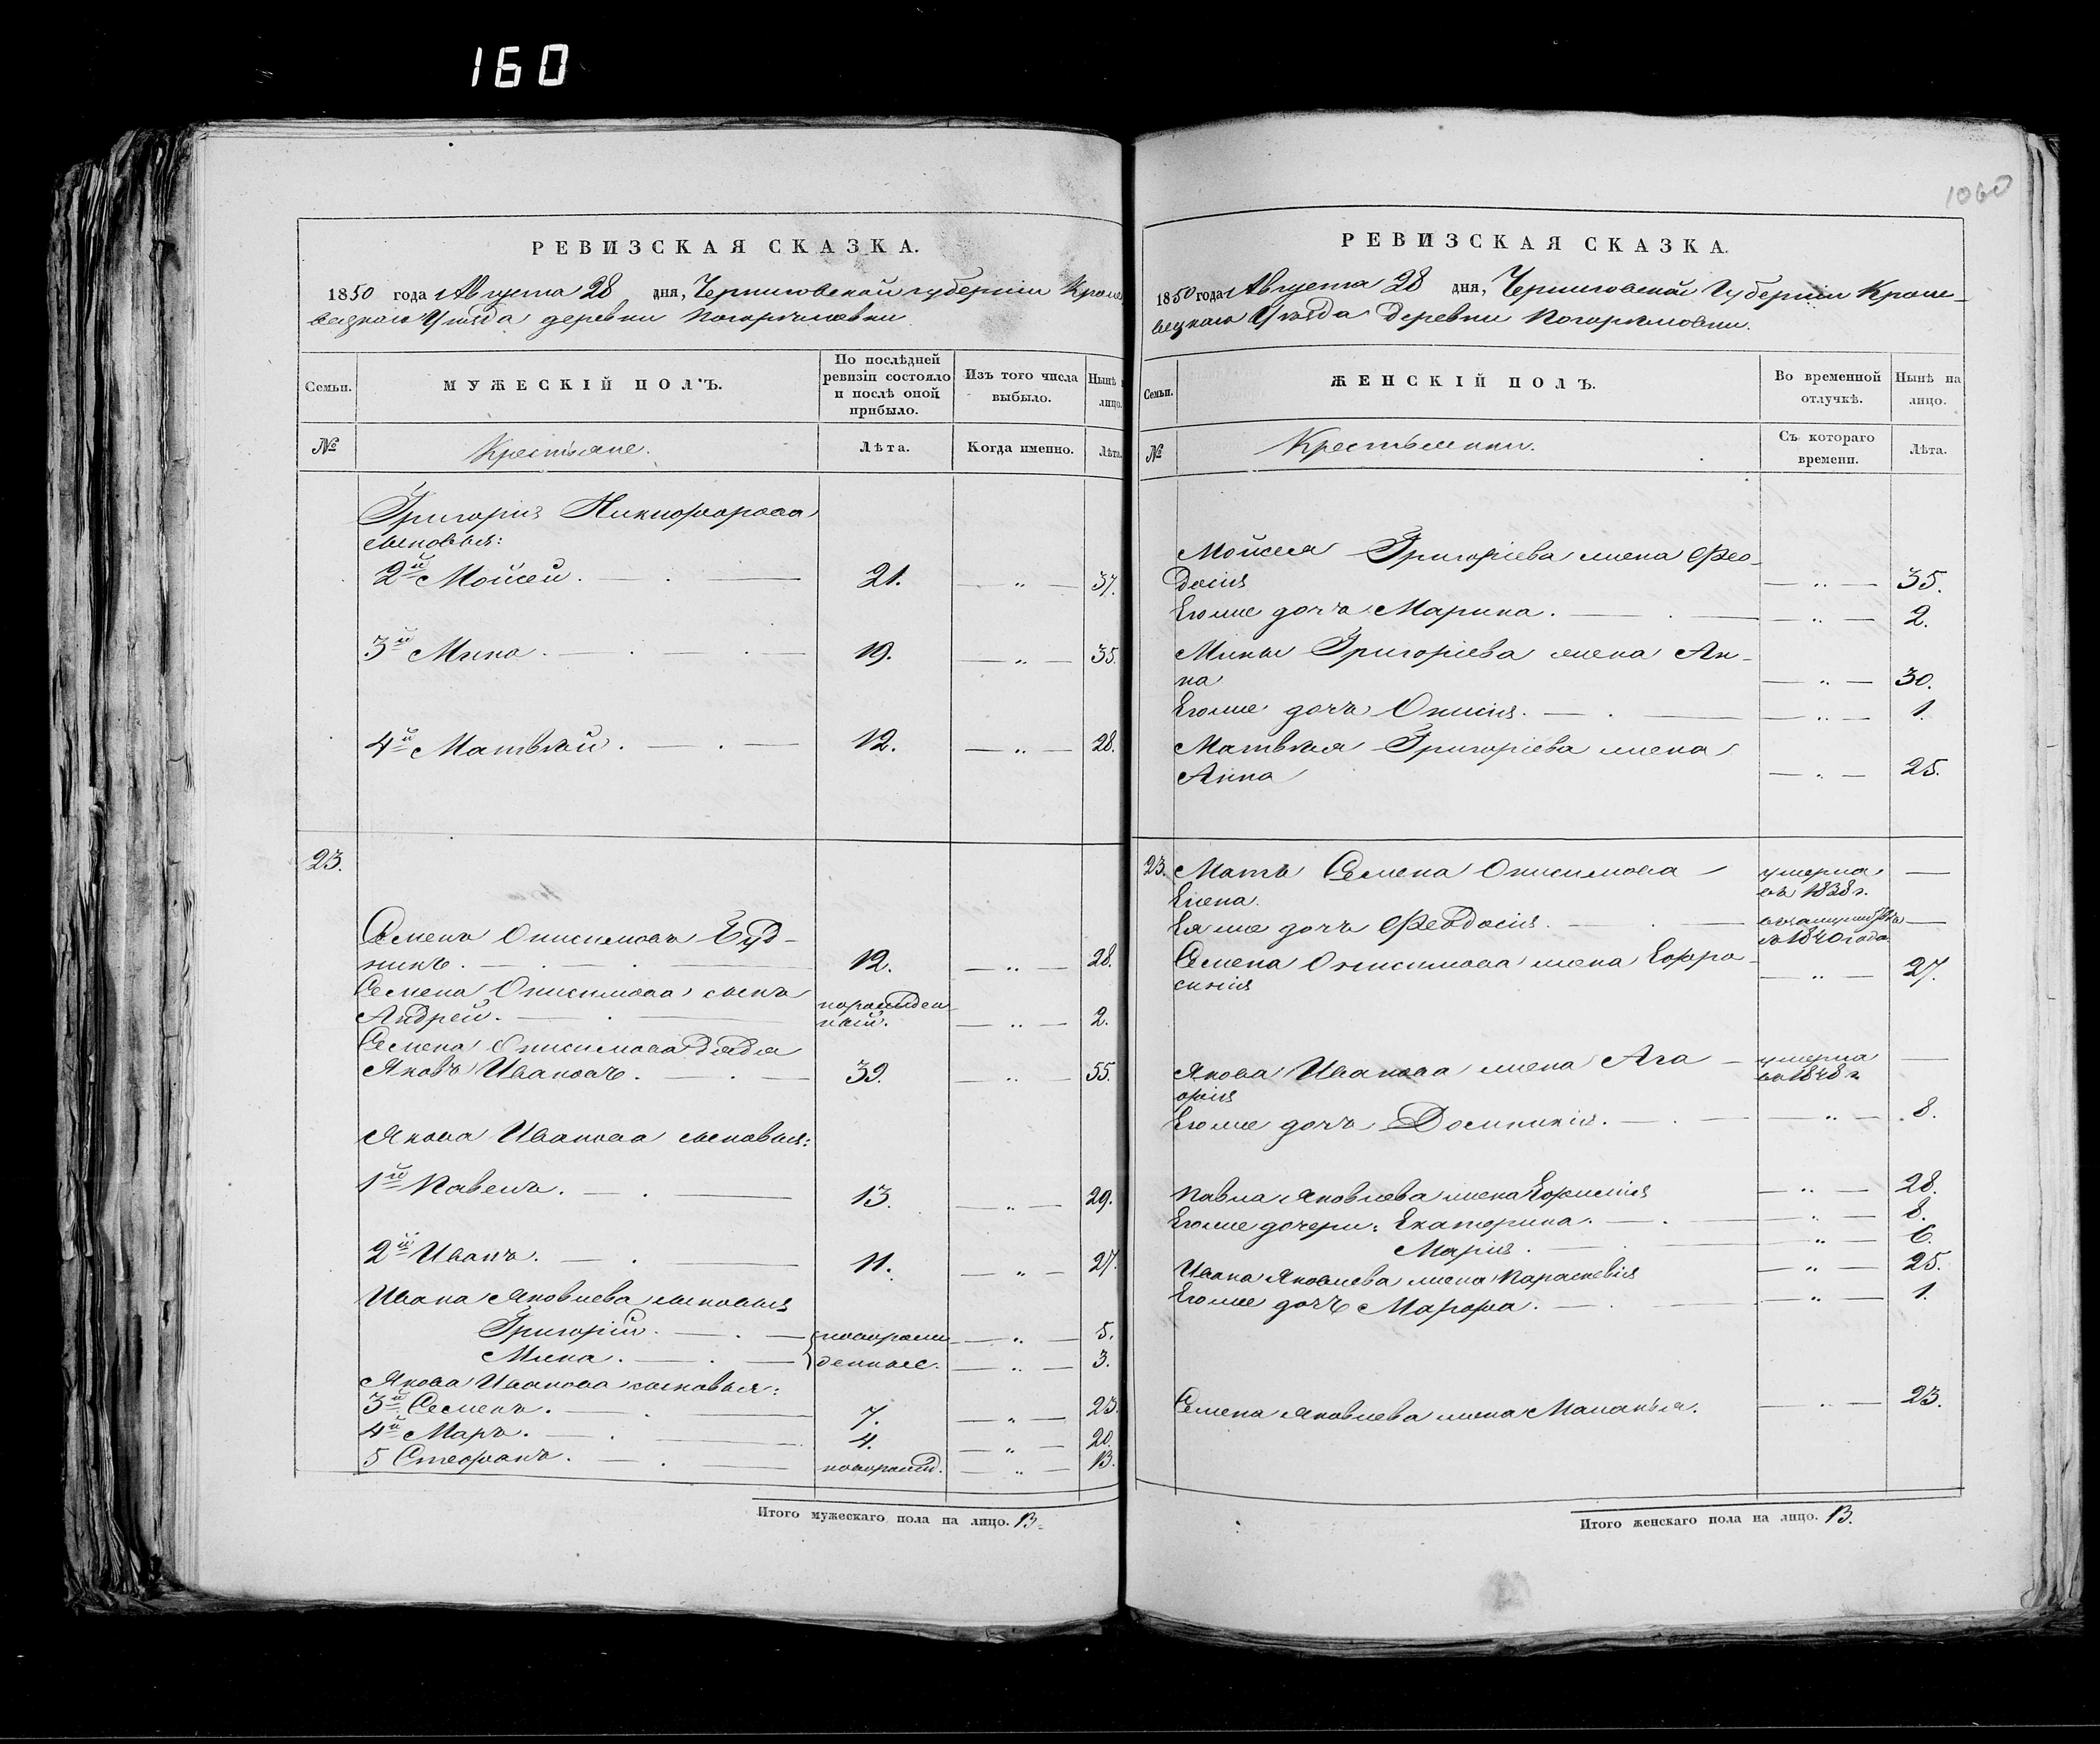 160
1060
РЕВИЗСКАЯ СКАЗКА.
1850 года Августа 28 дня, Черниговской губернии Кроле
вецкаго Уѣзда деревни Погорѣловки
Семьи.
МУЖЕСКІЙ ПОЛЪ.
По послѣдней
ревизіи состояло
и послѣ оной
прибыло.
Изъ того числа
выбыло.
Нынѣ
лицо.
№
Крестьяне.
Лѣта.
Когда именно.
Лѣта.
Григорія Никифорова
сыновья:
2й Мойсей. 21. — „ — 37.
3й Мина. 19. — „ — 35.
4й Матвѣй. 12. — „ — 28.
23.
Семенъ Онисимовъ Буд-
никъ. 12. — „ — 28.
Семена Онисимова сынъ
Андрей. новорожден
ный. — „ — 2.
Семена Онисимова дядя
Яковъ Ивановъ. 39. — „ — 55.
Якова Иванова сыновья:
1й Павелъ. 13. — „ — 29.
2й Иванъ. 11. — „ — 27.
Ивана Яковлева сыновья
Григорій. новорож — „ — 5.
Мина. денные. — „ — 3.
Якова Иванова сыновья:
3й Семенъ. 7. — „ — 23.
4й Маръ. 4. — „ — 20.
5 Стефанъ. новорожд. — „ — 13.
Итого мужескаго пола на лицо. 13.
РЕВИЗСКАЯ СКАЗКА.
1850 года Августа 28 дня, Черниговской Губерніи Кроле-
вецкаго Уѣзда Деревни Погорѣловки.
Семьи.
ЖЕНСКІЙ ПОЛЪ.
Во временной
отлучкѣ.
Нынѣ на
лицо.
№
Крестьянки.
Съ котораго
времени.
Лѣта.
Мойсея Григорьева жена Фео-
досія — „ — 35.
Его же дочь Марина. — „ — 2.
Мины Григорьева жена Ан-
на — „ — 30.
Его же дочь Онисія. — „ — 1.
Матвѣя Григорьева жена
Анна — „ — 25.
23. Мать Семена Онисимова умерла —
Елена. въ 1838 г.
Ея же дочь Феодосія. въ замужествѣ —
съ 1840 года
Семена Онисимова жена Ефро-
синія — „ — 27.
Якова Иванова жена Ага- умерла —
фія въ 1848 г.
Его же дочь Домникія. — „ — 8.
Павла Яковлева жена Ефимія — „ — 28.
Его же дочери: Екатерина. — „ — 8.
Марія. — „ — 6.
Ивана Яковлева жена Параскевія — „ — 25.
Его же дочь Марфа. — „ — 1.
Семена Яковлева жена Маланья. — „ — 23.
Итого женскаго пола на лицо. 13.